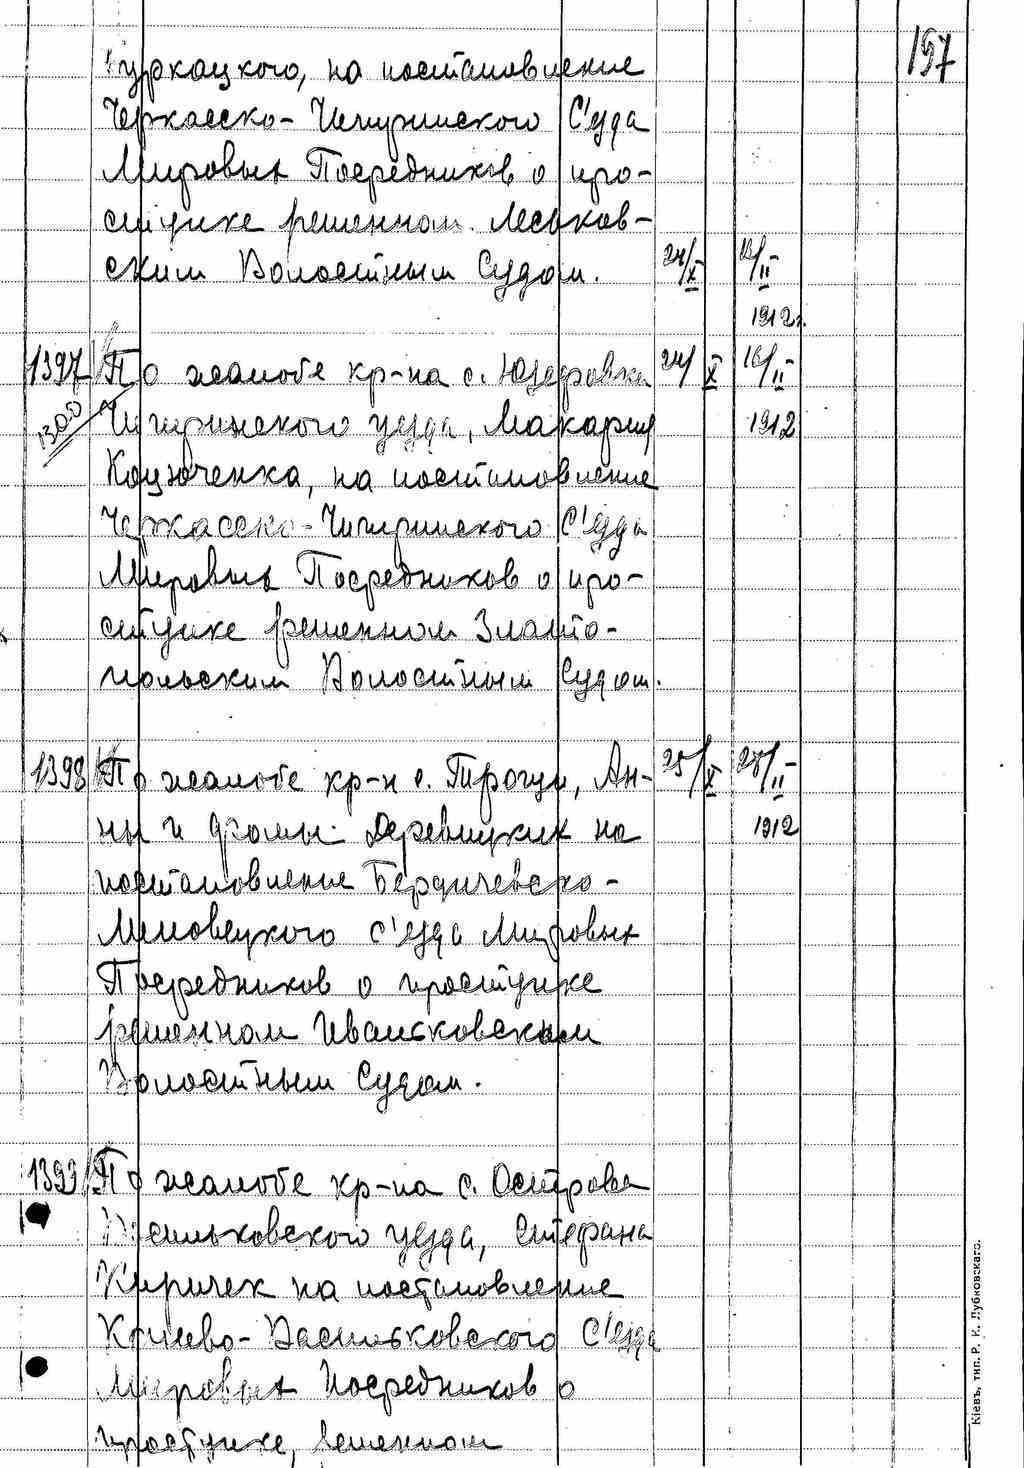 157
Гуркацкого, на постановление
Черкасско-Чигиринского С'езда
Мировых Посредников о про-
ступке решенном Леськов-
ским Волостным Судом. 24/X 13/II
1912г.
1397 По жалобе кр-на с. Юзефовки 24/X 16/II
1300 Чигиринского уезда, Макария 1912
Коцюченка, на постановление
Черкасско-Чигиринского С'езда
Мировых Посредников о про-
ступке решенном Златo-
польским Волостным Судом.
1398 По жалобе кр-н с. Трощи, Ан- 25/X 27/II
ны и Фомы Деревицких на 1912
постановление Бердичевско-
Липовецкого с'езда Мировых
Посредников о проступке
решенном Иваньковским
Волостным Судом.
1399 По жалобе кр-на с. Острова
Васильковского уезда, Стефана
Киричек на постановление
Киево-Васильковского С'езда
Мировых Посредников о
проступке, решенном
Кіевъ, тип. Р. К. Лубковскаго.